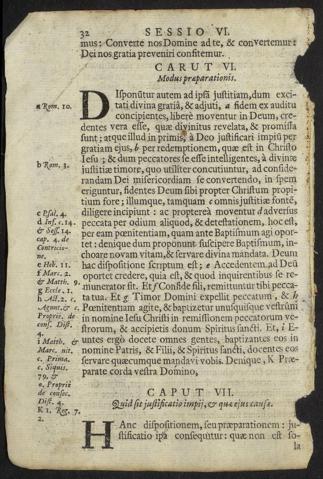 32 SESSIO VI.
mus: Converte nos Domine ad te, & convertemur:
Dei nos gratia preveniri confitemur.
CARUT VI.
Modus præparationis.
DIsponūtur autem ad ipsā justitiam, dum exci-
tati divina gratiâ, & adjuti, a fidem ex auditu
concipientes, liberè moventur in Deum, cre-
dentes vera esse, quæ divinitus revelata, & promissa
sunt; atque illud in primis, à Deo justificari impiū per
gratiam ejus, b per redemptionem, quæ est in Christo
Iesu; & dum peccatores se esse intelligentes, à divinæ
justitiæ timore, quo utiliter concutiuntur, ad conside-
randam Dei misericordiam se convertendo, in spem
eriguntur, fidentes Deum sibi propter Christum propiti-
um fore; illumque, tamquam c omnis justitiæ fontē,
diligere incipiunt: ac propterà moventur d adversus
peccata per odium aliquod, & detestationem, hoc est,
per eam pœnitentiam, quam ante Baptismum agi opor-
tet: denique dum proponunt suscipere Baptismum, in-
choare novam vitam, & servare divina mandata. Deum
hac dispositione scriptum est; e Accedentem ad Deū
oportet credere, quia est, & quod inquirentibus se re-
munerator sit. Et f Confide fili, remittuntur tibi pecca-
ta tua. Et g Timor Domini expellit peccatum, & h
Pœnitentiam agite, & baptizetur unusquisque vestrūm
in nomine Iesu Christi in remissionem peccatorum ve-
strorum, & accipietis donum Spiritus sancti. Et, i E-
untes ergò docete omnes gentes, baptizantes eos in
nomine Patris, & Filii, & Spiritus sancti, docentes eos
servare quæcumque mandavi vobis. Denique, K Præ-
parate corda vestra Domino,
a Rom. 10.
b Rom. 3.
c Psal. 4.
d Inf. c. 14.
& sess. 14.
cap. 4. de
Contritio-
ne.
e Heb. 11.
f Marc. 2.
& Matth. 9.
g Eccle. 1.
h Act. 2. c.
& c.
Proprie. de
cons. Dist.
4.
i Matth. &
Marc. ult.
c. Prima.
c. Siquis.
79. &
a. Propriè
de consec.
Dist. 4.
K 1. Reg. 7.
2.
CAPUT VII.
Quid sit justificatio impij, & quæ ejus causæ.
HAnc dispositionem, seu præparationem: ju-
stificatio ipsa consequitur: quæ non est so-
la